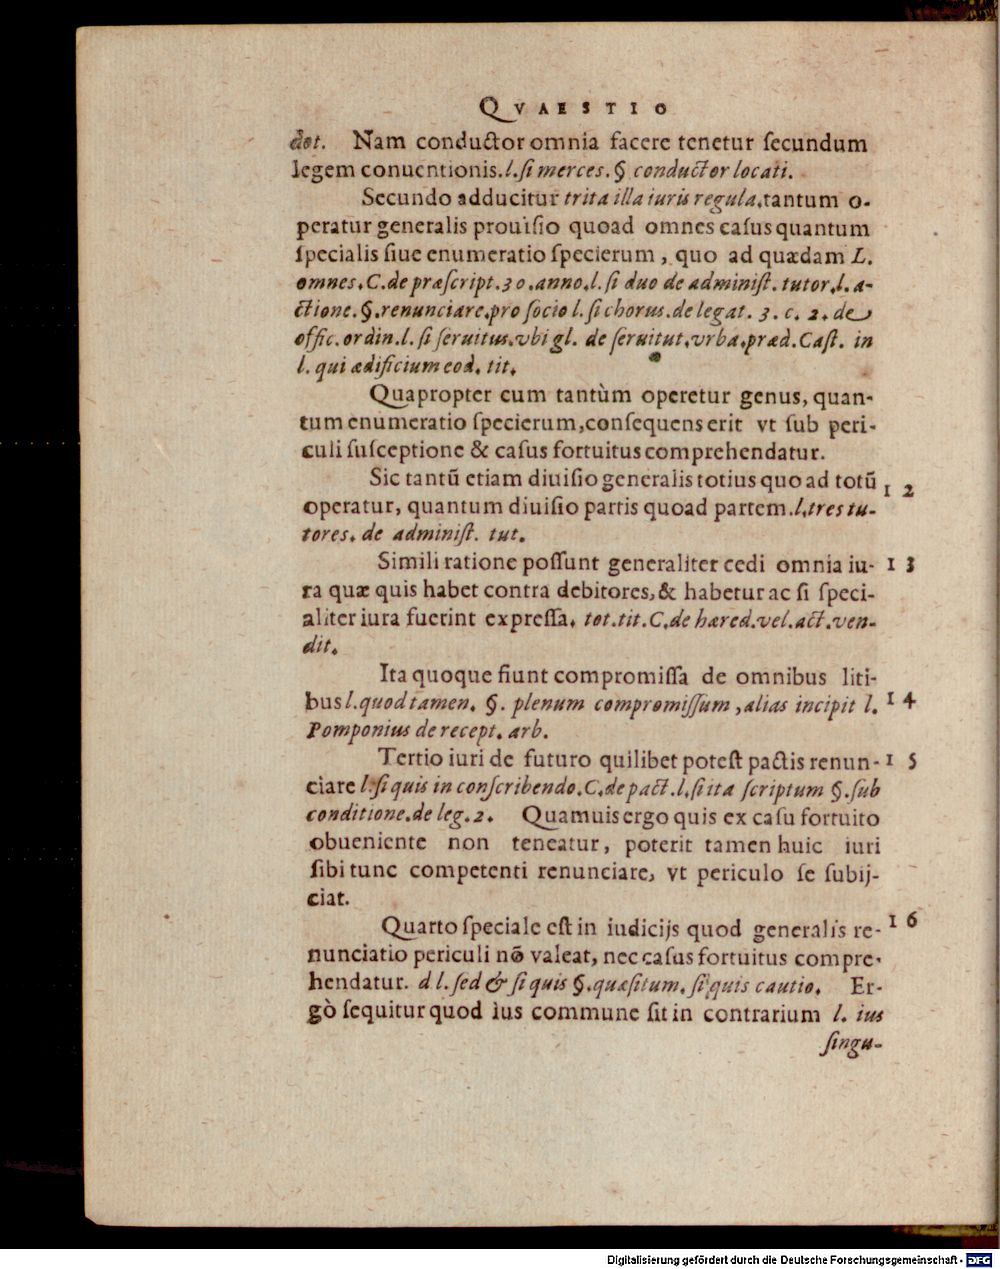 QVAESTIO
dot. Nam conductor omnia facere tenetur ſecundum
legem conuentionis. l. ſi merces. § conductor locati.
Secundo adducitur trita illa iuris regula, tantum o-
peratur generalis prouiſio quoad omnes caſus quantum
ſpecialis ſiue enumeratio ſpecierum, quo ad quædam L.
omnes. C. de præſcript. 30. anno. l. ſi duo de adminiſt. tutor. l. a-
ctione. §. renunciare. pro ſocio l. ſi chorus. de legat. 3. c. 2. de
offic. ordin. l. ſi ſeruitus. vbi gl. de ſeruitut. vrba. præd. Caſt. in
l. qui ædificium eod. tit.
Quapropter cum tantùm operetur genus, quan-
tum enumeratio ſpecierum, conſequens erit vt ſub peri-
culi ſuſceptione & caſus fortuitus comprehendatur.
Sic tantū etiam diuiſio generalis totius quo ad totū 12
operatur, quantum diuiſio partis quoad partem. l. tres tu-
tores. de adminiſt. tut.
Simili ratione poſſunt generaliter cedi omnia iu- 13
ra quæ quis habet contra debitores, & habetur ac ſi ſpeci-
aliter iura fuerint expreſſa. tot. tit. C. de hæred. vel. act. ven-
dit.
Ita quoque fiunt compromiſſa de omnibus liti-
bus l. quod tamen. §. plenum compromiſſum, alias incipit l. 14
Pomponius de recept. arb.
Tertio iuri de futuro quilibet poteſt pactis renun- 15
ciare l. ſi quis in conſcribendo. C. de pact. l. ſi ita ſcriptum §. ſub
conditione. de leg. 2. Quamuis ergo quis ex caſu fortuito
obueniente non teneatur, poterit tamen huic iuri
ſibi tunc competenti renunciare, vt periculo ſe ſubij-
ciat.
Quarto ſpeciale eſt in iudicijs quod generalis re- 16
nunciatio periculi nō valeat, nec caſus fortuitus compre-
hendatur. d l. ſed & ſi quis §. quæſitum. ſi quis cautio. Er-
gò ſequitur quod ius commune ſit in contrarium l. ius
ſingu-
Digitalisierung gefördert durch die Deutsche Forschungsgemeinschaft - DFG